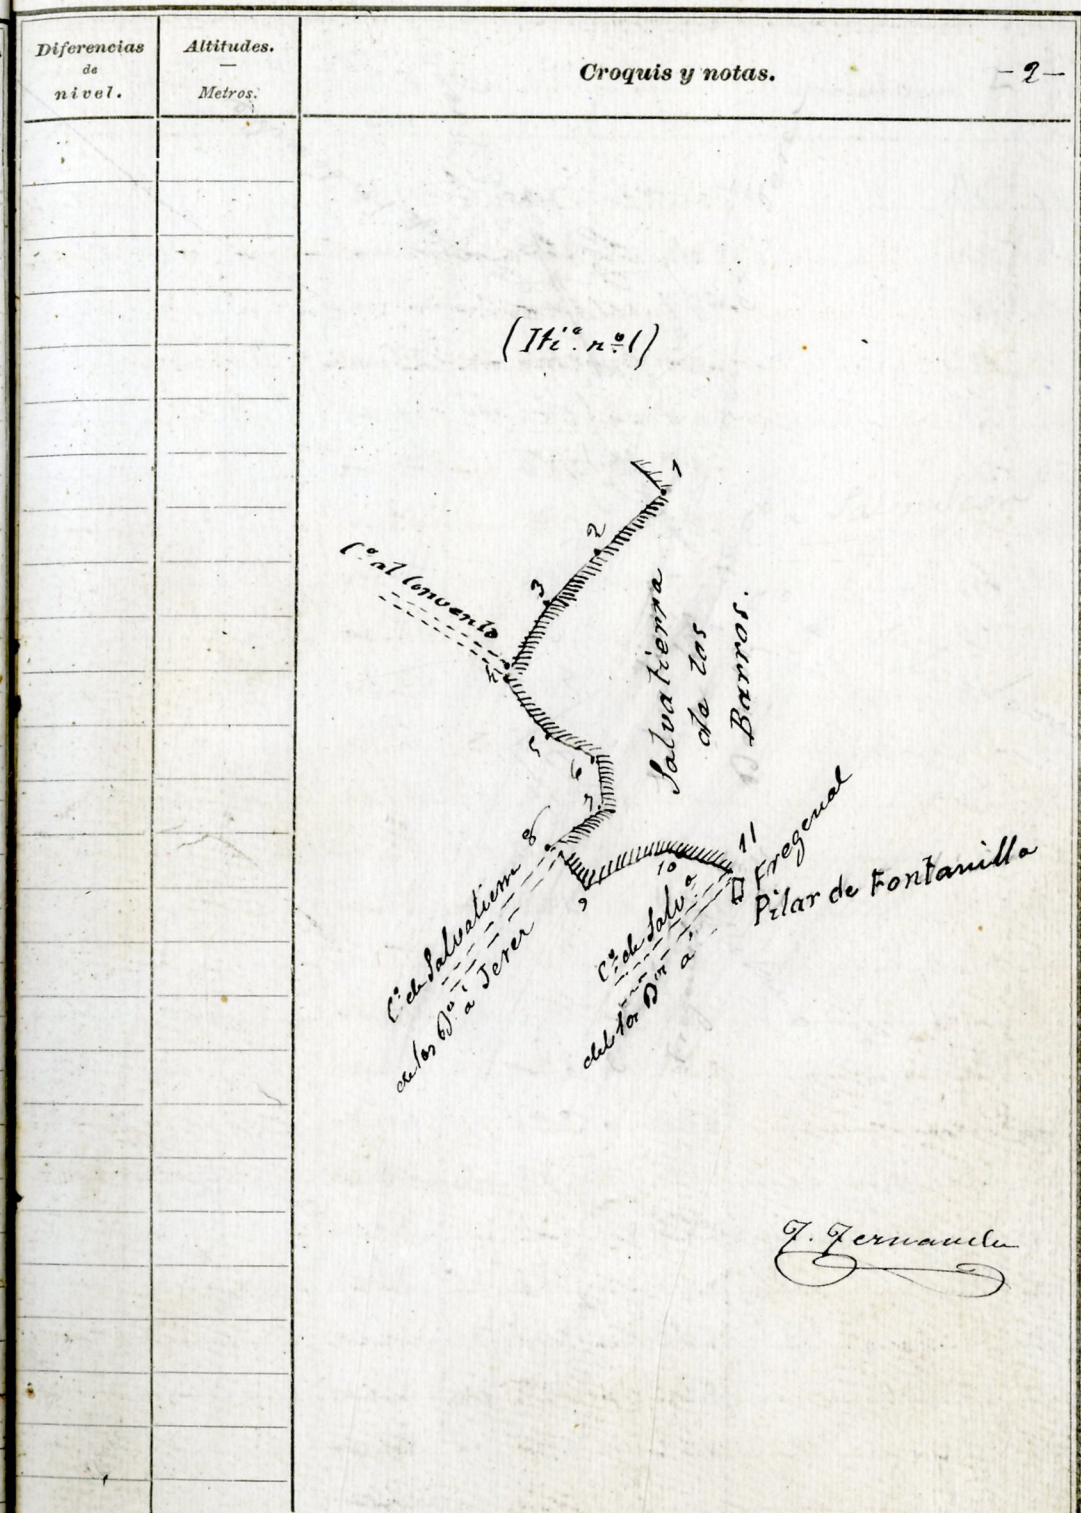 Diferencias
de
nivel.
Altitudes.
Metros.
Croquis y notas.
-2-
(Iti.º nº 1)
1
2
3
Cº al Convento
4
5
6
7
8
9
10
11
Salvatierra
de los
Barros.
Cº de Salvatierra
de los Bº á Jerez
Cº de Salvª
de los Bos á
Fregenal
Pilar de Fontanilla
F. Fernandez